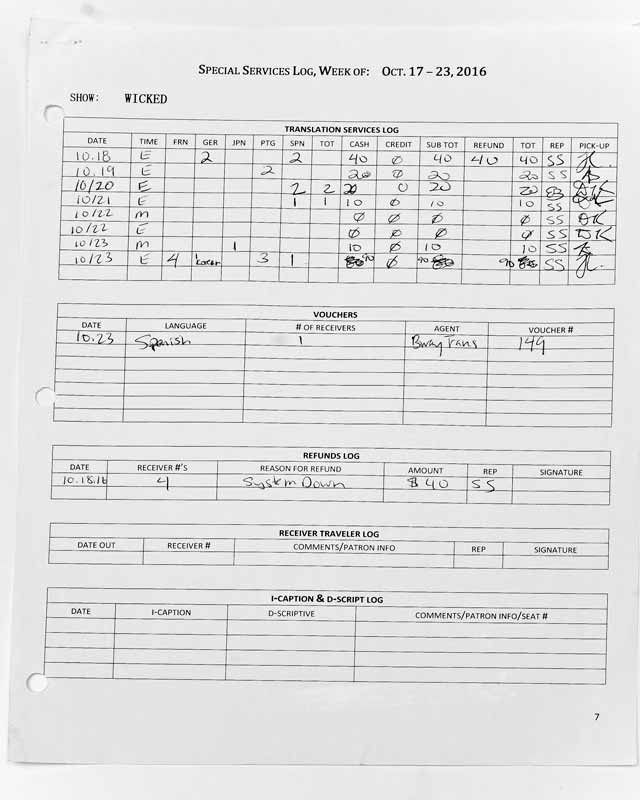 SPECIAL SERVICES LOG, WEEK OF: OCT. 17 – 23, 2016
SHOW: WICKED
TRANSLATION SERVICES LOG
DATE TIME FRN GER JPN PTG SPN TOT CASH CREDIT SUB TOT REFUND TOT REP PICK-UP
10.18 E 2 2 40 ∅ 40 40 40 SS
10.19 E 2 20 ∅ 20 20 SS
10/20 E 2 2 20 0 20 20
10/21 E 1 1 10 ∅ 10 10 SS
10/22 m ∅ ∅ ∅ ∅ SS DK
10/22 E ∅ ∅ ∅ ∅ SS DK
10/23 m 1 10 ∅ 10 10 SS
10/23 E 4 3 1 90 ∅ 90 90 SS
VOUCHERS
DATE LANGUAGE # OF RECEIVERS AGENT VOUCHER #
10.23 Spanish 1 Bway Trans 149
REFUNDS LOG
DATE RECEIVER #'S REASON FOR REFUND AMOUNT REP SIGNATURE
10.18.16 4 System Down $40 SS
RECEIVER TRAVELER LOG
DATE OUT RECEIVER # COMMENTS/PATRON INFO REP SIGNATURE
I-CAPTION & D-SCRIPT LOG
DATE I-CAPTION D-SCRIPTIVE COMMENTS/PATRON INFO/SEAT #
7